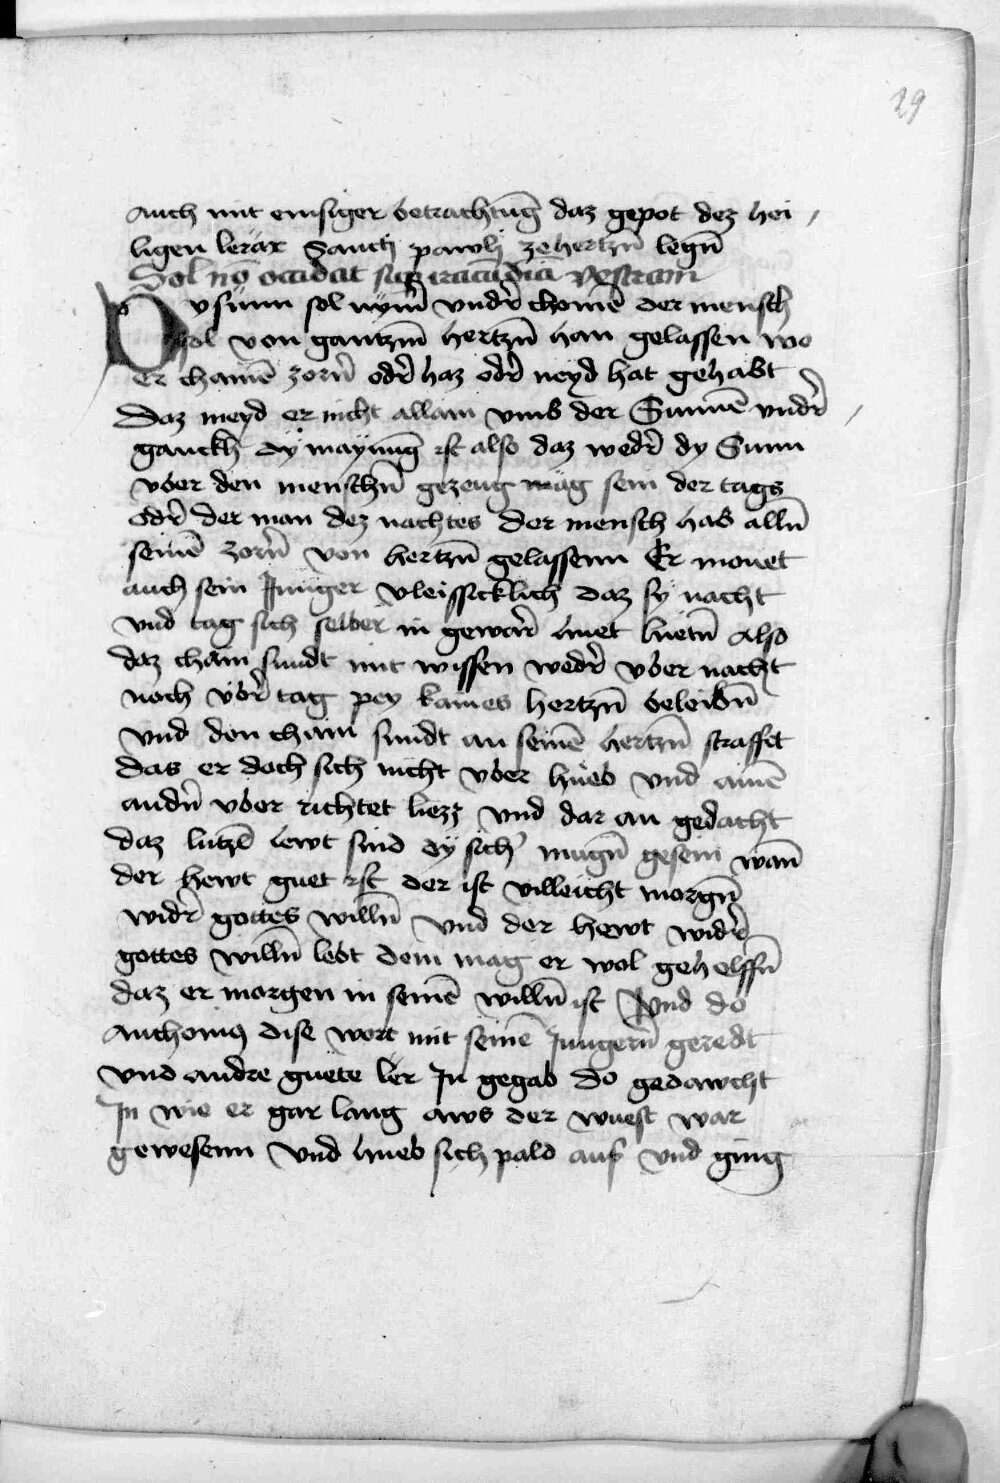 29
auch mit emsiger betrachtu̅g daz gepot dez hei
ligen lerär Sancti pawlj ze hertzn̅ legn̅
Sol no̅ occidat sup iracu̅dia̅ vestram
Dy sunn sol nym̅ vndr̅ chome̅ der mensch
sol von gantzm̅ hertzn̅ han gelassen wo
er chaine̅ zorn̅ odr̅ haz odr̅ neyd hat gehabt
Daz meyd er nicht allain vmb der Sunne̅ vndr̅
ganckh dy maynu̅g ist also daz wedr̅ dy Sunn
vber den menschn̅ gezeug mug sein der tags
odr̅ der man dez nachtes der mensch hab alln̅
seine̅ zorn̅ von hertzn̅ gelassenn Er monet
auch sein Junger vleissicklich daz sy nacht
vnd tag sich selber in gewar̅ huet hietn̅ also
daz chain sundt mit wissen wedr̅ vber nacht
noch vbr̅ tag pey kaines hertzn̅ beleibn̅
vnd den chain sundt an seine̅ hertzn̅ straffet
das er doch sich nicht vber hueb vnd aine̅
andn̅ vber richtet liezz vnd dar an gedacht
daz lutze̅ lewt sind dy sich' mugn̅ gesein wan̅
der hewt guet ist der ist villeicht morgn̅
widr̅ gottes willn̅ vnd der hewt widr̅
gottes willn̅ lebt dem mag er wol gehelffn̅
daz er morgen in seine̅ willn̅ ist Vnd do
Anthonig dise wort mit seine̅ Jungern̅ geredt
vnd andre guete ler Jn gegab do gedawcht
Jn wie er gar lang aws der wuest war
gewesenn vnd hueb sich pald auf vnd ging